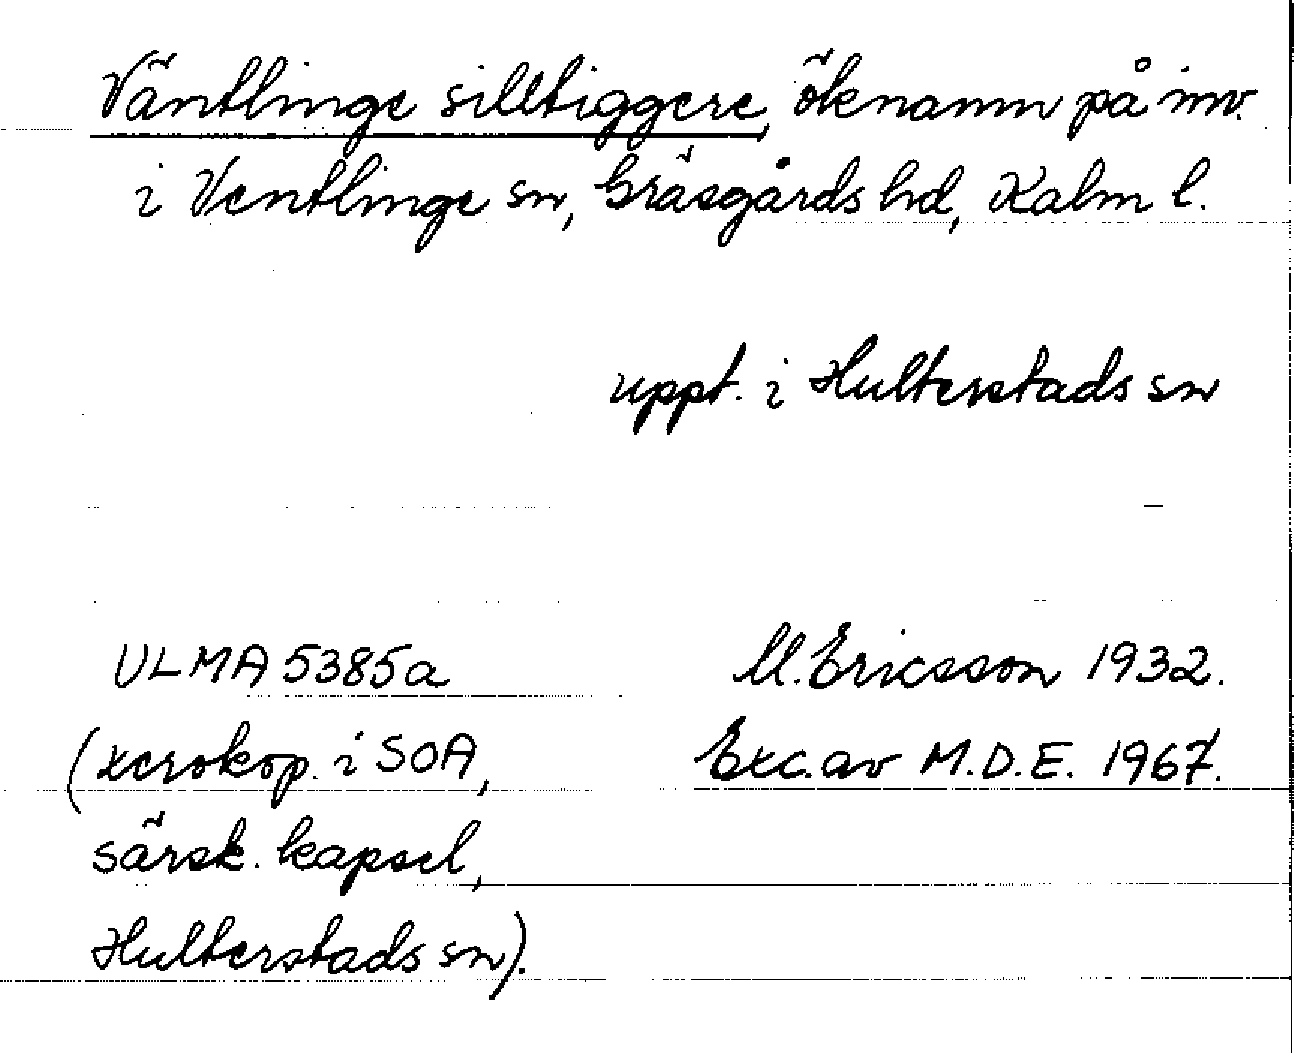 Väntlinge silltiggere, öknamn på inv.
i Ventlinge sn, Gräsgårds hd, Kalm l.
uppt. i Hulterstads sn
ULMA 5385a M. Ericsson 1932.
(xerokop. i SOA, Exc. av M.D.E. 1967.
särsk. kapsel,
Hulterstads sn).